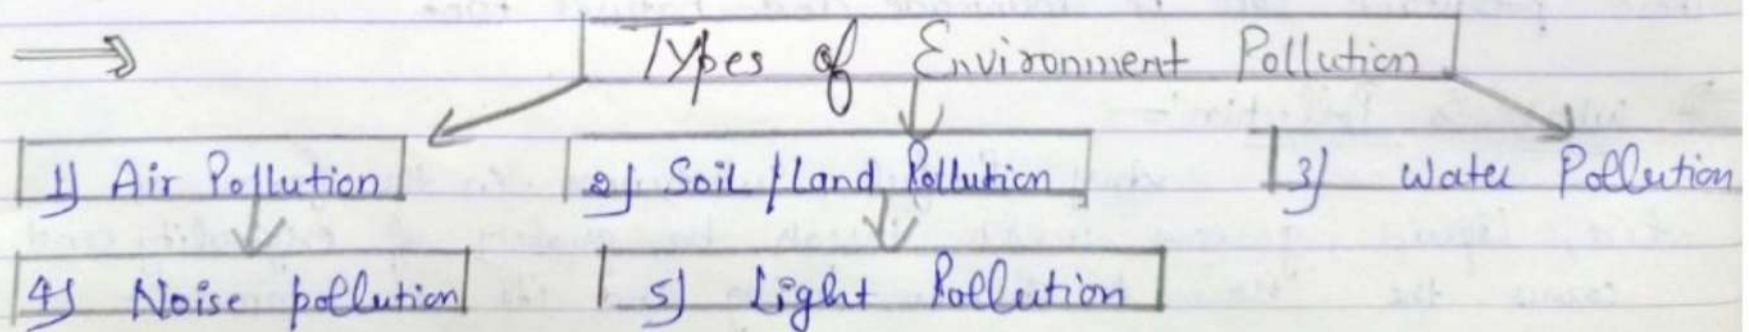 Types of Environment Pollution
1) Air Pollution 2) Soil / Land Pollution 3) Water Pollution
4) Noise pollution 5) Light Pollution